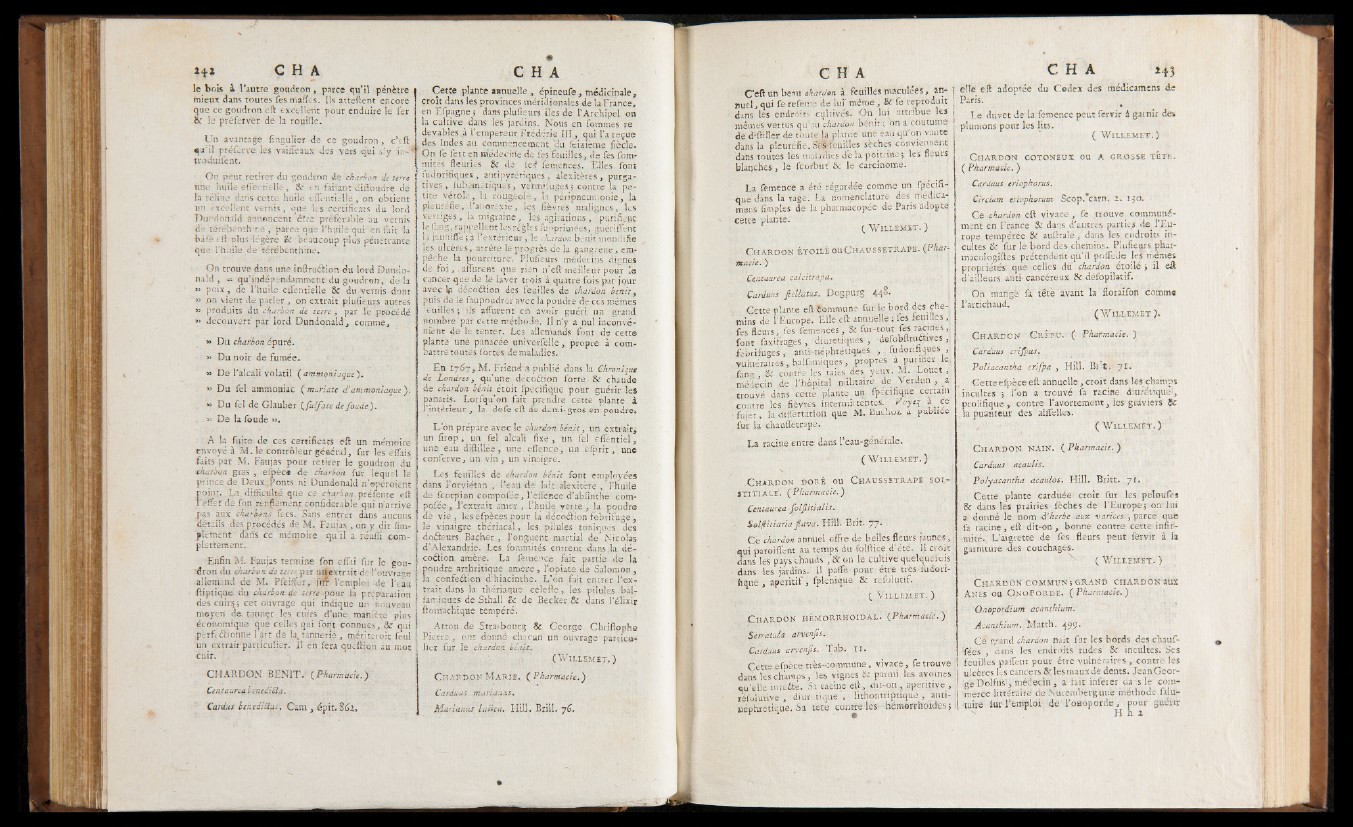 242 C H A
le bois à l'autre goudron, parce qu'il pénètre
mieux dans toutes ses masses. Ils attestent encore
que ce goudron est excellent pour enduire le fer
& le préserver de la rouille.
Un avantage singulier de ce goudron, c'est
qu'il préserve les vaisseaux des vers qui s'y in-
troduisent.
On peut retirer du goudron de charbon de terre
une huile essentielle, & en faisant dissoudre de
la résine dans cette huile essentielle, on obtient
un excellent vernis, que les certificats du lord
Dundonald annoncent être préférable au vernis
de térébenthine, parce que l'huile qui en fait la
base est plus légère & beaucoup plus pénétrante
que l'huile de térébenthine.
On trouve dans une instruction du lord Dundo-
nald, « qu'indépendamment du goudron, de la
» poix, de l'huile essentielle & du vernis dont
» on vient de parler, on extrait plusieurs autres
» produits du charbon de terre, par le procédé
» decouvert par lord Dundonald, comme,
» Du charbon épuré.
» Du noir de fumée.
» De l'alcali volatil (ammoniaque).
» Du sel ammoniac (muriate d'ammoniaque).
» Du sel de Glauber (sulfate de soude).
» De la soude ».
A la suite de ces certificats est un mémoire
envoyé à M. le contrôleur général, sur les essais
faits par M. Faujas pour retirer le goudron du
charbon gras, espèce de charbon sur lequel le
prince de Deux-Ponts ni Dundonald n'opéroient
point. La difficulté que ce charbon présente est
l'effet de son renflement considérable qui n'arrive
pas aux charbons secs. Sans entrer dans aucuns
détails des procédés de M. Faujas, on y dit sim-
plement dans ce mémoire qu'il a réussi com-
plettement.
Enfin M. Faujas termine son essai sur le gou-
dron du charbon de terre par un extrait de l'ouvrage
allemand de M. Pfeiffer, sur l'emploi de l'eau
stiptique du charbon de terre pour la préparation
des cuirs; cet ouvrage qui indique un nouveau
moyen de tanner les cuirs d'une manière plus
économique que celles qui sont connues, & qui
perfectionne l'art de la tannerie, mériteroit seul
un extrait particulier. Il en sera question au mot
cuir.
CHARDON BENIT. (Pharmacie.)
Centaurea benedicta.
Cardus benedictus. Cam, épit. 562.
C H A
Cette plante annuelle, épineuse, médicinale,
croît dans les provinces méridionales de la France,
en Espagne; dans plusieurs îles de l'Archipel on
la cultive dans les jardins. Nous en sommes re-
devables à l'empereur Frédéric III, qui l'a reçue
des Indes au commencement du seisième siècle.
On se sert en médecine de ses feuilles, de ses som-
mités fleuries & de ses semences. Elles sont
sudorifiques, antipyrétiques, alexitères, purga-
tives, subantiques, vermifuges; contre la pe-
tite vérole, la rougeole, la péripneumonie, la
pleurésie, l'anorexie, les fièvres malignes, les
vertiges, la migraine, les agitations, purifient
le sang, rappellent les règles supprimées, guérissent
la jaunisse; à l'extérieur, le chardon benit mondifie
les ulcères, arrête le progrès de la gangrène, em-
pêche la pourriture. Plusieurs médecins dignes
de foi, assurent que rien n'est meilleur pour le
cancer que de le laver trois à quatre fois par jour
avec la décoction des feuilles de chardon benit,
puis de le saupoudrer avec la poudre de ces mêmes
feuilles; ils assurent en avoir guéri un grand
nombre par cette méthode. Il n'y a nul inconvé-
nient de le tenter. Les allemands font de cette
plante une panacée universelle, propre à com-
battre toutes sortes de maladies.
En 1767, M. Friend a publié dans la Chronique
de Londres, qu'une décoction forte & chaude
de chardon bénit étoit spécifique pour guérir les
panaris. Lorsqu'on fait prendre cette plante à
l'intérieur, la dose est de demi-gros en poudre.
L'on prépare avec le chardon bénit, un extrait,
un sirop, un sel alcali fixe, un sel essentiel,
une eau distillée, une essence, un esprit, une
conserve, un vin, un vinaigre.
Les feuilles de chardon bénit sont employées
dans l'orviétan, l'eau de lait alexitère, l'huile
de scorpion composée, l'essence d'absinthe com-
posée, l'extrait amer, l'huile verte, la poudre
de vie, les espèces pour la décoction fébrifuge,
le vinaigre thériacal, les pilules toniques des
docteurs Bacher, l'onguent martial de Nicolas
d'Alexandrie. Les sommités entrent dans la dé-
coction amère. La semence fait partie de la
poudre arthritique amère, l'opiate de Salomon,
la confection d'hiacinthe. L'on fait entrer l'ex-
trait dans la thériaque celeste, les pilules bal-
samiques de Sthall & de Becker & dans l'élixir
stomachique tempéré.
Atton de Strasbourg & George Christophe
Pierre, ont donné chacun un ouvrage particu-
lier sur le chardon bénit.
(WILLEMET.)
CHARDON MARIE. (Pharmacie.)
Carduus marianus.
Marianus lucien. Hill. Brill. 76.
C H A
C'est un beau chardon à feuilles maculées, an-
nuel, qui se resème de lui même, & se reproduit
dans les endroits cultivés. On lui attribue les
mêmes vertus qu'au chardon bénit; on a coutume
de distiller de toute la plante une eau qu'on vante
dans la pleurésie. Ses feuilles sèches conviennent
dans toutes les maladies de la poitrine; les fleurs
blanches, le scorbut & le carcinome.
La semence a été régardée comme un spécifi-
que dans la rage. La nomenclature des médica-
mens simples de la pharmacopée de Paris adopte
cette plante.
(WILLEMET.)
CHARDON ÉTOILÉ ou CHAUSSETRAPE. (Phar-
macie.)
Centaurea calcitrapa.
Carduus stellatus. Dogpurg 448.
Cette plante est commune sur le bord des che-
mins de l'Europe. Elle est annuelle; ses feuilles,
ses fleurs, ses semences, & sur-tout ses racines,
sont saxifrages, diurétiques, désobstructives,
fébrifuges, anti-néphrétiques, sudorifiques,
vulnéraires, balsamiques, propres à purifier le
sang, & contre les taies des yeux. M. Louet,
médecin de l'hôpital militaire de Verdun, a
trouvé dans cette plante un spécifique certain
contre les fièvres intermittentes. Voyez à ce
sujet, la dissertation que M. Buchoz a publiée
sur la chaussetrape.
La racine entre dans l'eau-générale.
(WILLEMET.)
CHARDON DORÉ OU CHAUSSETRAPE SOL-
STITIALE. (Pharmacie.)
Centaurea solstitialis.
Solstitiaria flava. Hill. Brit. 77.
Ce chardon annuel offre de belles fleurs jaunes,
qui paroissent au temps du solstice d'été. Il croît
dans les pays chauds, & on le cultive quelquefois
dans les jardins. Il passe pour être très-sudori-
fique, apéritif, splénique & résolutif.
(WILLEMET.)
CHARDON HEMORRHOIDAL. (Pharmacie.)
Serratula arvensis.
Carduus arvensis. Tab. 11.
Cette espèce très-commune, vivace, se trouve
dans les champs, les vignes & parmi les avoines
qu'elle infecte. Sa racine est, dit-on, apéritive,
résolutive, diurétique, lithontriptique, anti-
néphrétique. Sa tête contre les hémorrhoïdes;
C H A 243
elle est adoptée du Codex des médicamens de
Paris.
Le duvet de la semence peut servir à garnir des
plumons pour les lits.
(WILLEMET.)
CHARDON COTONEUX OU A GROSSE TÊTE.
(Pharmacie.)
Carduus eriophorus.
Circium eriophorum Scop. carn. 2. 130.
Ce chardon est vivace, se trouve communé-
ment en France & dans d'autres parties de l'Eu-
rope tempérée & australe, dans les endroits in-
cultes & sur le bord des chemins. Plusieurs phar-
macologistes prétendent qu'il possède les mêmes
propriétés que celles du chardon étoilé; il est
d'ailleurs anti-cancéreux & désopilatif.
On mange sa tête avant la floraison comme
l'artichaud.
(WILLEMET).
CHARDON CRÉPU. (Pharmacie.)
Carduus crispus.
Poliacantha crispa, Hill. Brit. 71.
Cette espèce est annuelle, croît dans les champs
incultes; l'on a trouvé sa racine diurétique,
prolifique, contre l'avortement, les graviers &
la puanteur des aisselles.
(WILLEMET.)
CHARDON NAIN. (Pharmacie.)
Carduus acaulis.
Polyacantha acaulos. Hill. Britt. 71.
Cette plante carduée croît sur les pelouses
& dans les prairies sèches de l'Europe; on lui
a donné le nom d'herbe aux varices, parce que
sa racine, est dit-on, bonne contre cette infir-
mité. L'aigrette de ses fleurs peut servir à la
garniture des couchages.
(WILLEMET.)
CHARDON COMMUN; GRAND CHARDON AUX
ANES ou ONOPORDE. (Pharmacie.)
Onopordium acanthium.
Acanthium. Matth. 499.
Ce grand chardon naît sur les bords des chauf-
fées, dans les endroits rudes & incultes. Ses
feuilles passent pour être vulnéraires, contre les
ulcères les cancers & les maux de dents. Jean Geor-
ge Dolfus, médecin, a fait insérer dans le com-
merce littéraire de Nuremberg une méthode salu-
taire sur l'emploi de l'onoporde, pour guérir
H h 2